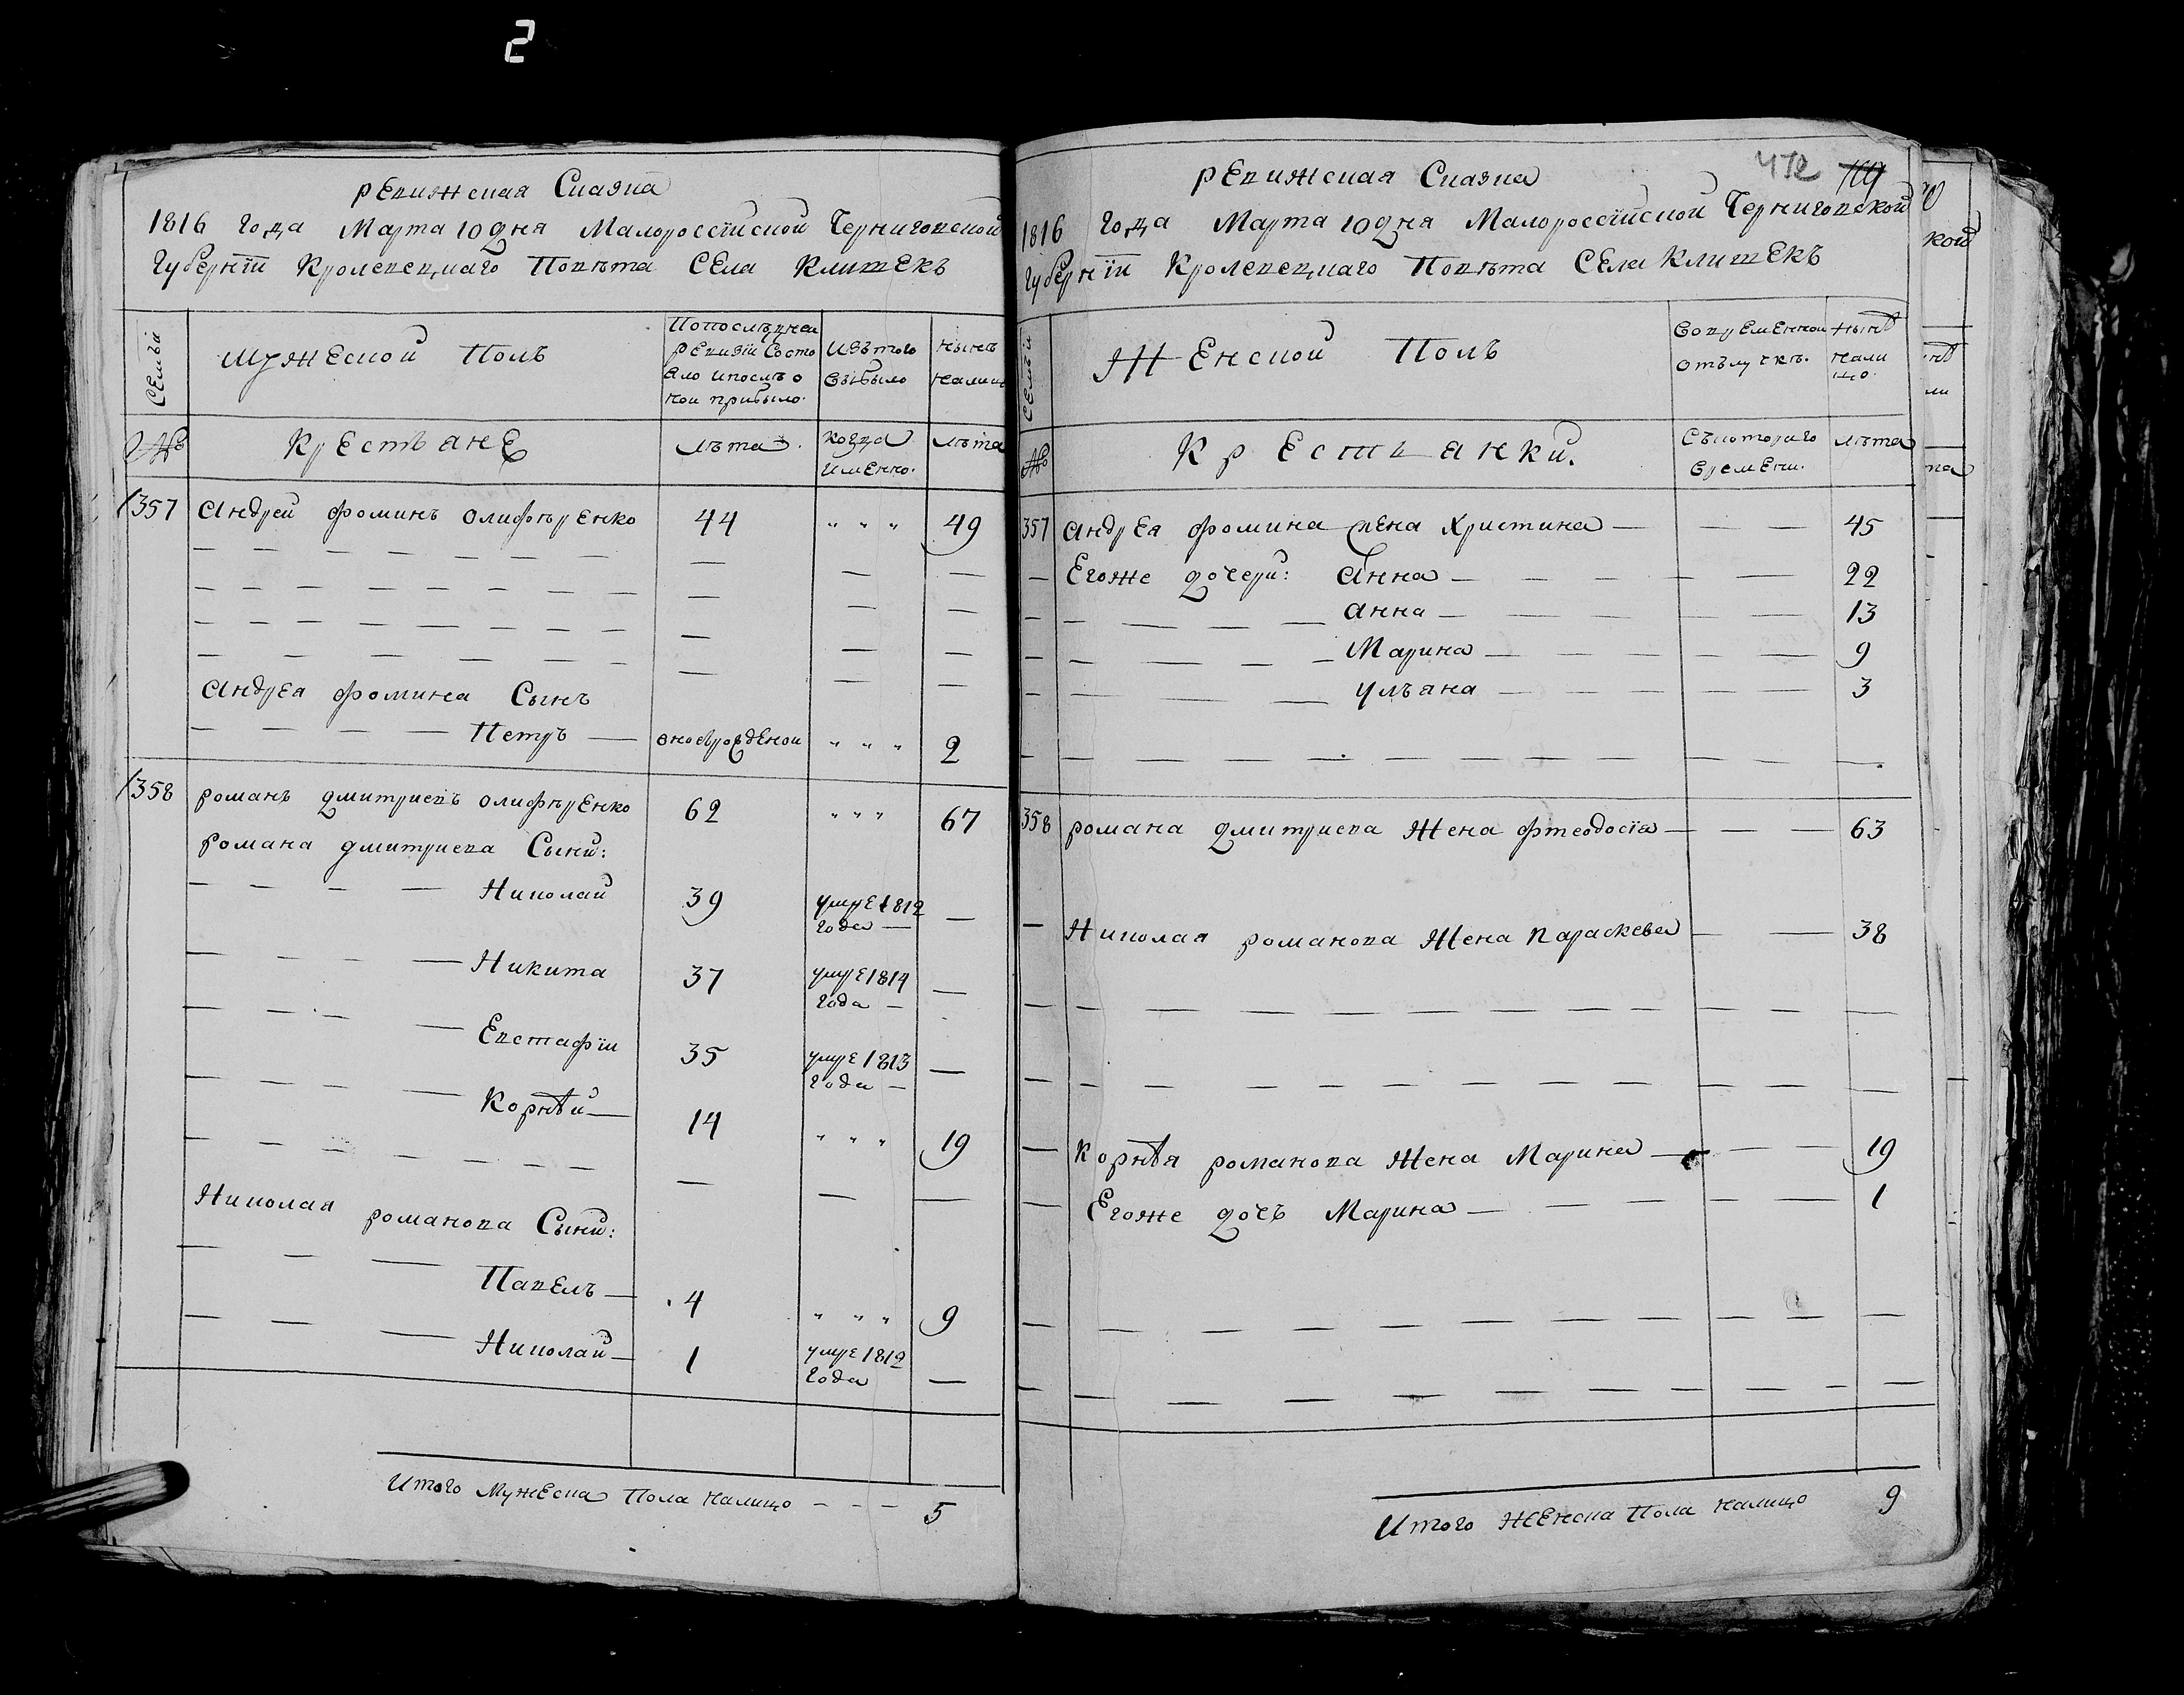 2
Ревижская Сказка
1816 года Марта 10 дня Малороссійской Черниговской
Губерніи Кролевецкаго Повѣта Села Клишекъ
Семьи
Мужеской Полъ
Попослѣдней
ревизіи состо
яло ипослѣ о
ной прибыло.
Изътого
выбыло
нынѣ
налицо
№
Крестьяне
лѣта.
когда
именно.
лѣта
1357 Андрей Фоминъ Олифѣренко 44 " " " 49
Андрея Фомина Сынъ
Петръ вновьрожденой " " " 2
1358 Романъ Дмитриевъ Олифѣренко 62 " " " 67
Романа Дмитриева Сыны:
Николай 39 умре 1812
года
Никита 37 умре 1814
года
Евстафіи 35 умре 1813
года
Корнѣй 14 " " " 19
Николая Романова Сыны:
Павелъ 4 " " " 9
Николай 1 умре 1812
года
Итого Мужеска Пола налицо 5
472
Ревижская Сказка
1816 года Марта 10 дня Малороссійской Черниговской
Губерніи Кролевецкаго Повѣта Села Клишекъ
Семьи
Женской Полъ
Вовременной
отълучкѣ.
нынѣ
нали
цо.
№
Крестьянки.
Съкотораго
времени.
лѣта
357 Андрея Фомина жена Христина 45
Егоже дочери: Анна 22
Анна 13
Марина 9
Ульяна 3
358 Романа Дмитриева Жена Фтеодосіа 63
Николая Романова Жена Параскева 38
Корнѣя Романова Жена Марина 19
Егоже дочь Марина 1
Итого Женска Пола налицо 9